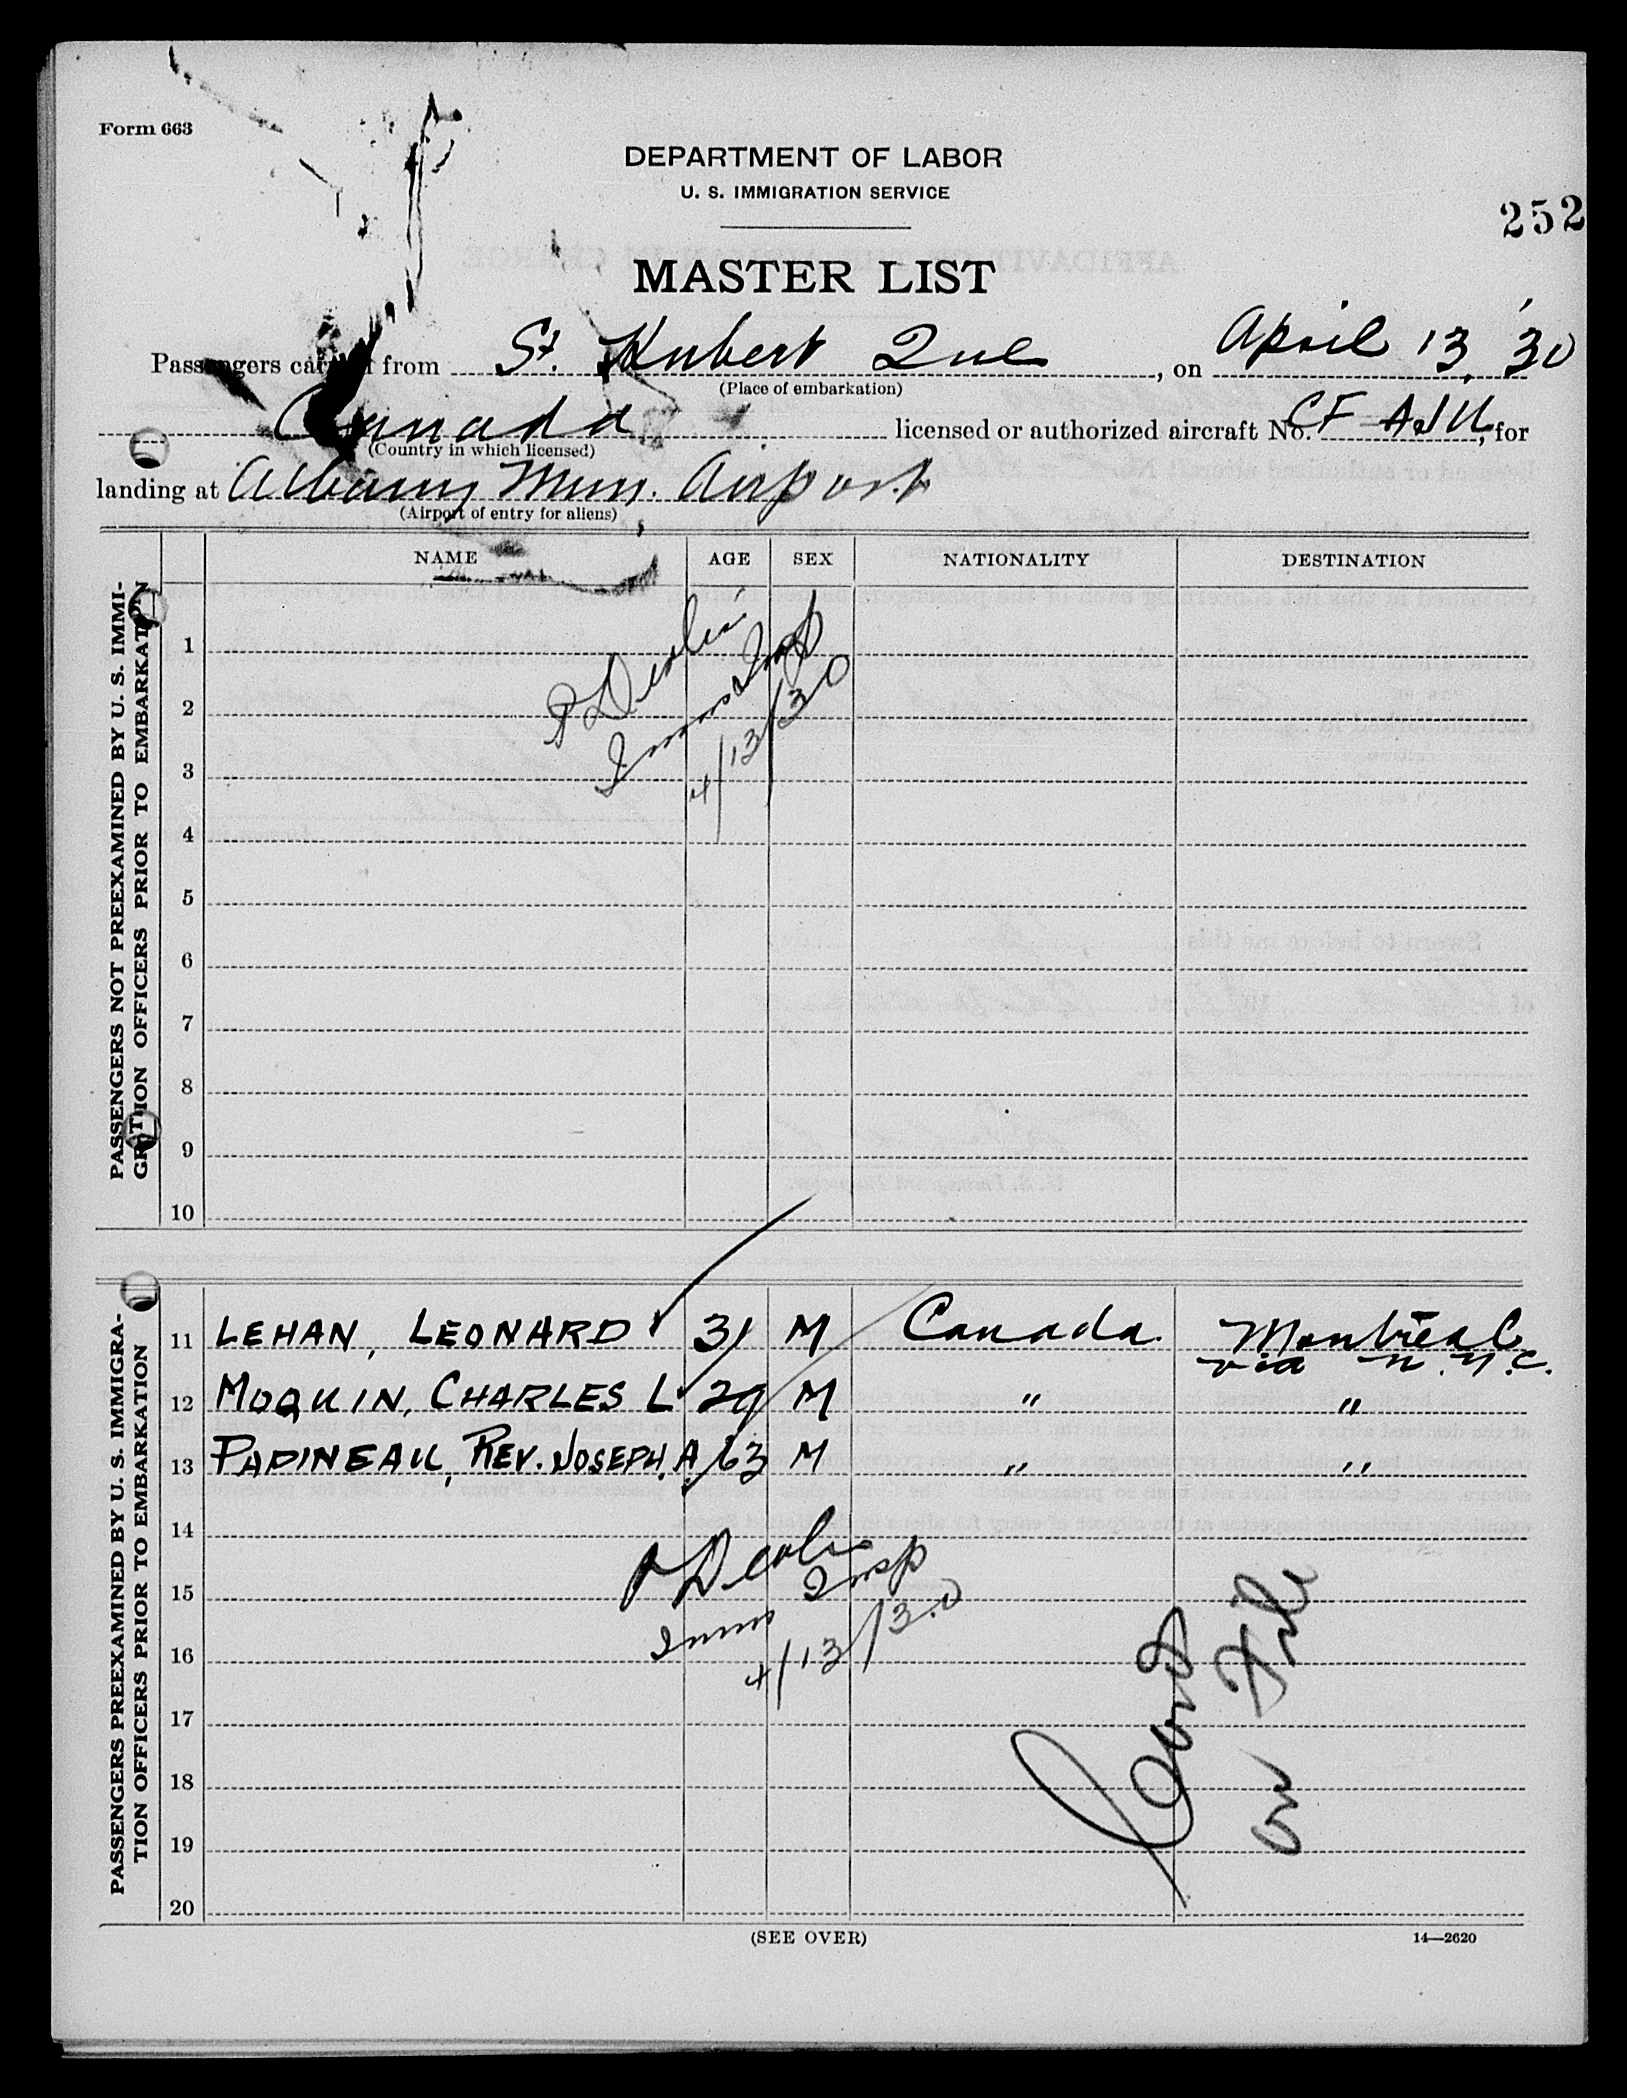 Form 663
DEPARTMENT OF LABOR
U. S. IMMIGRATION SERVICE
252
MASTER LIST
Passengers carried from St. Hubert Que, on April 13, '30
(Place of embarkation)
Canada licensed or authorized aircraft No. CF AJU, for
(Country in which licensed)
landing at Albany Mun. Airport
(Airport of entry for aliens)
NAME AGE SEX NATIONALITY DESTINATION
PASSENGERS NOT PREEXAMINED BY U. S. IMMI-
GRATION OFFICERS PRIOR TO EMBARKATION
1
2
3
Immn Insp
4/13/30
4
5
6
7
8
9
10
PASSENGERS PREEXAMINED BY U. S. IMMIGRA-
TION OFFICERS PRIOR TO EMBARKATION
11 LEHAN, LEONARD 31 M Canada Montreal
via N.Y.C.
12 MOQUIN, CHARLES L 29 M " "
13 PAPINEAU, REV. JOSEPH, A. 63 M " "
14
15
Imms Insp
4/13/30
16
17
18
19
20
Cards
on File
(SEE OVER)
14—2620